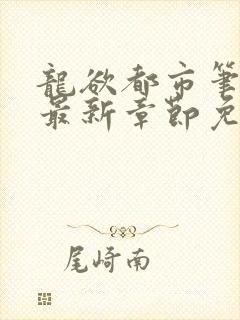 龍欲都市筆
最新章節免
尾崎南